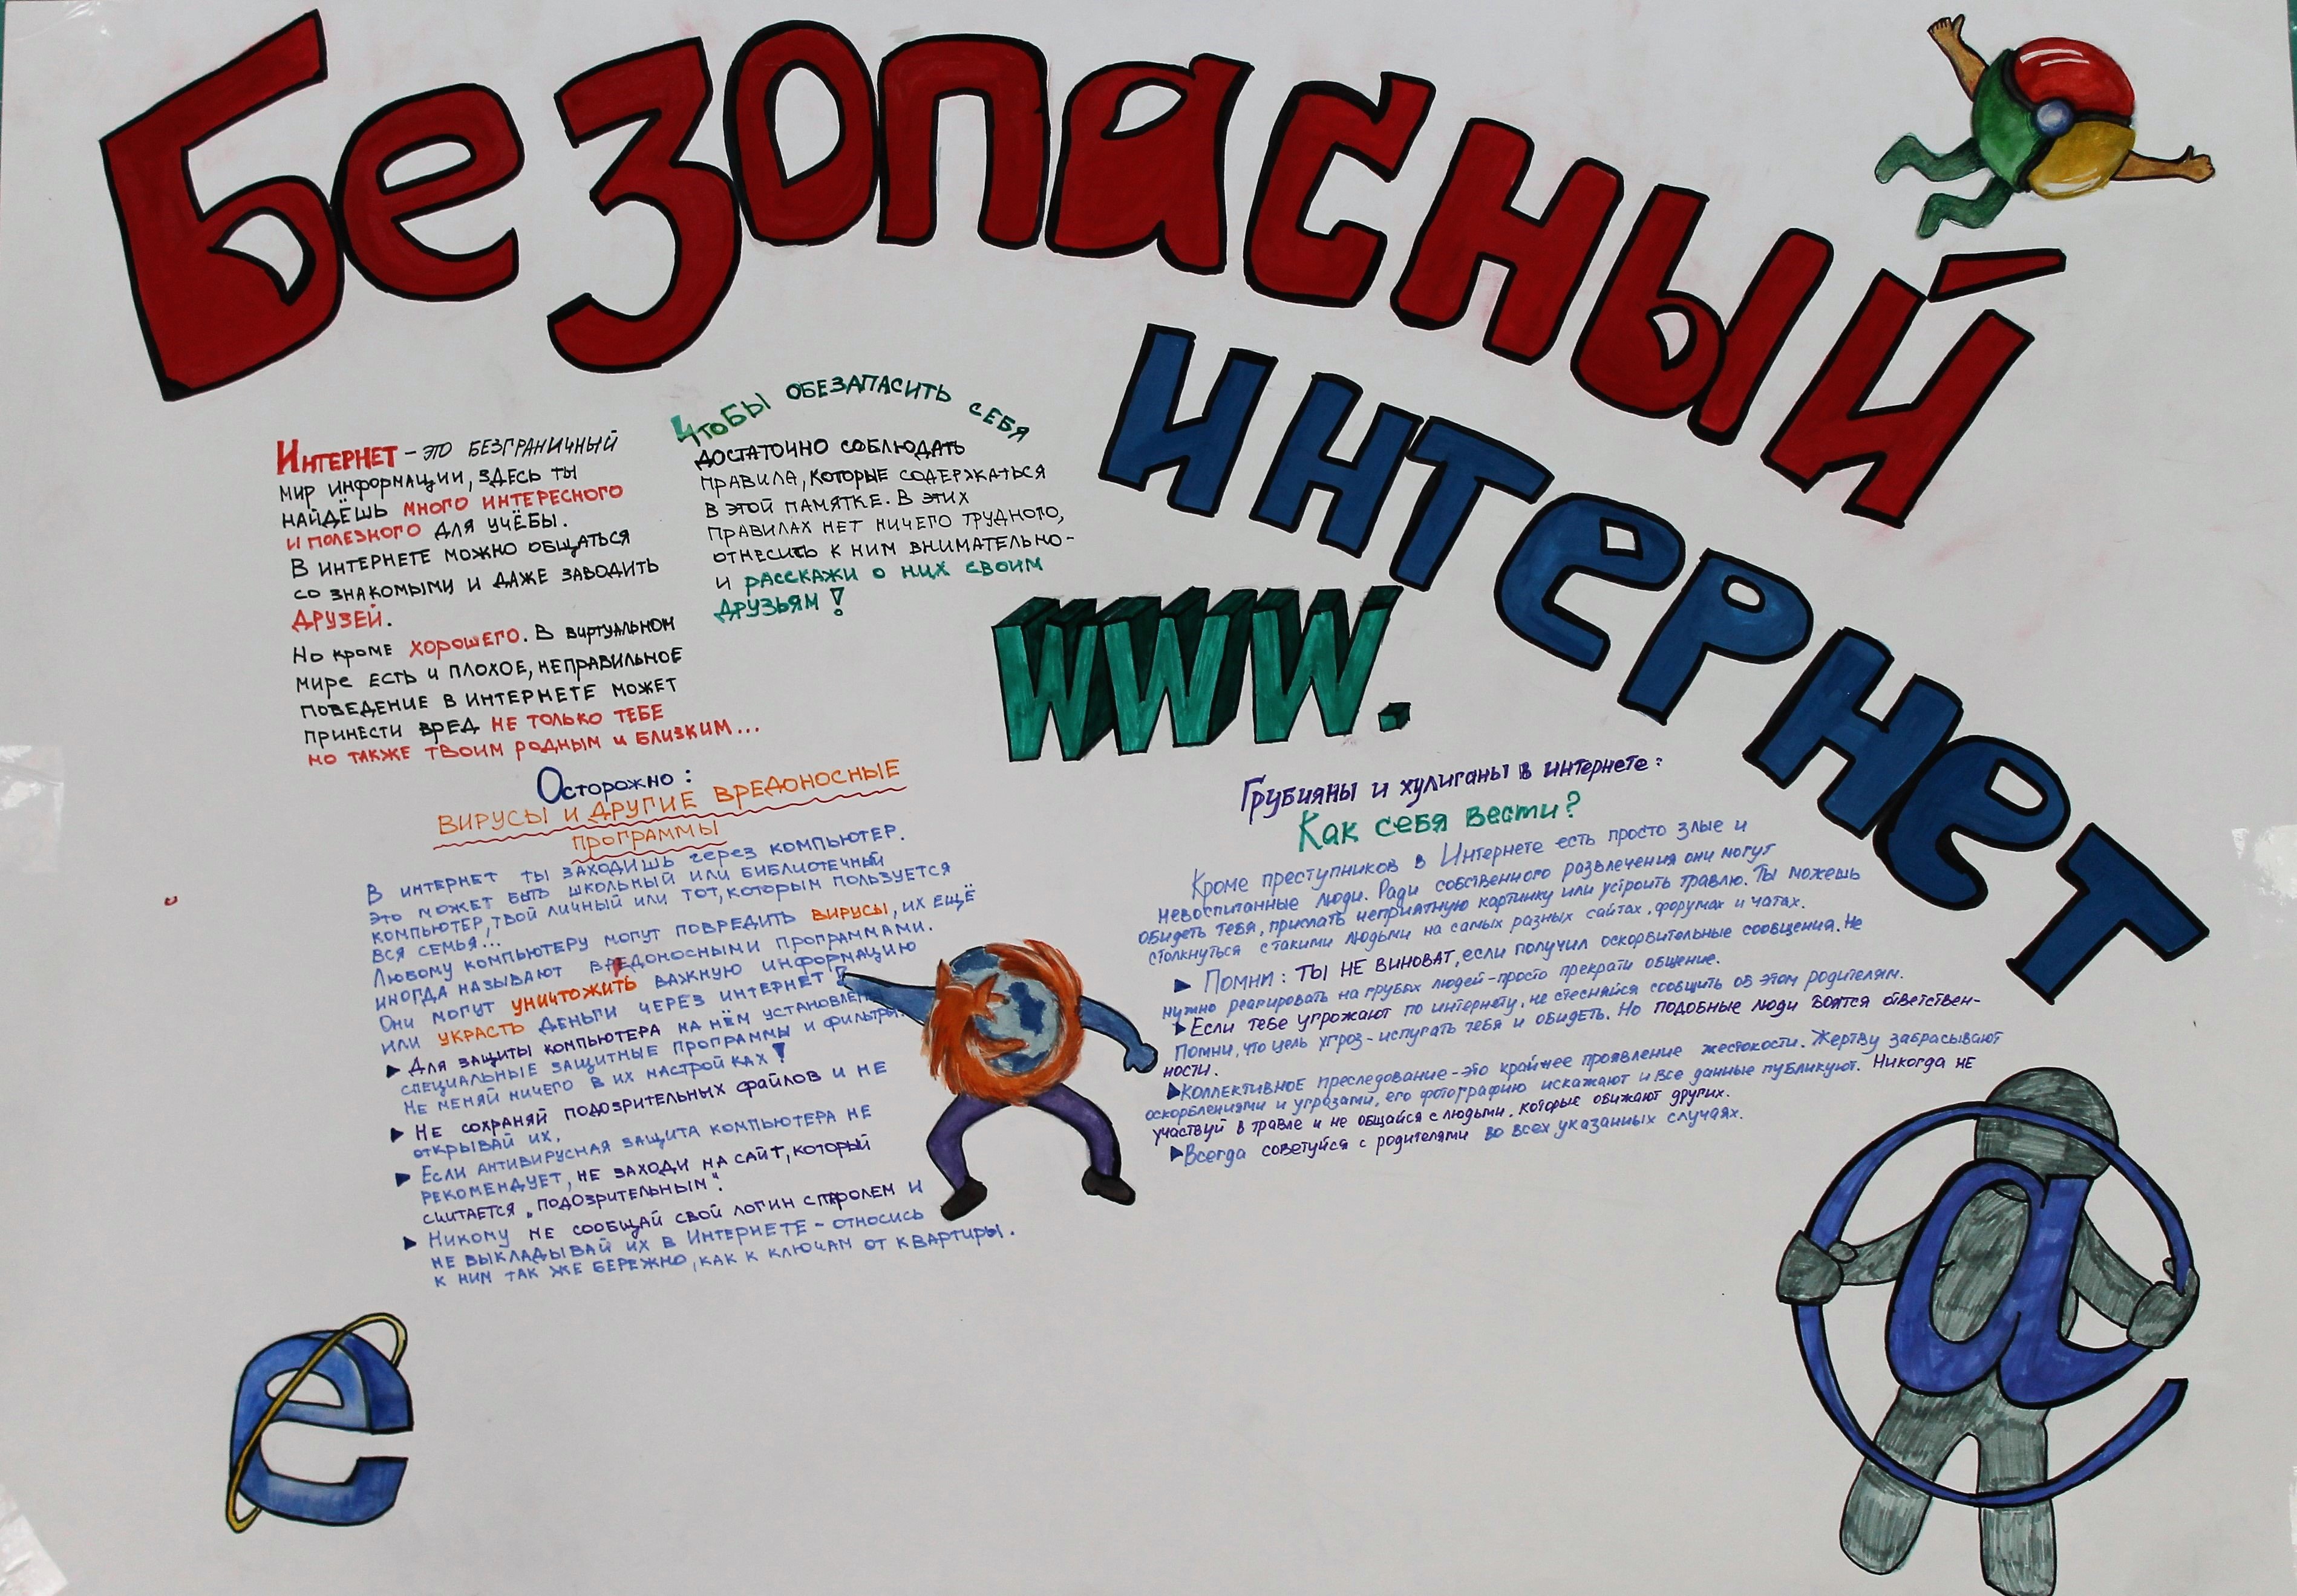 Безопасный
интернет
Интернет - это безграничный
мир информации, здесь ты
найдёшь много интересного
и полезного для учёбы.
В интернете можно общаться
со знакомыми и даже заводить
друзей.
Но кроме хорошего. В виртуальном
мире есть и плохое, неправильное
поведение в интернете может
принести вред не только тебе
но также твоим родным и близким...
Чтобы обезапасить себя
достаточно соблюдать
правила, которые содержаться
в этой памятке. В этих
правилах нет ничего трудного,
отнесись к ним внимательно-
и расскажи о них своим
друзьям!
WWW.
Осторожно:
вирусы и другие вредоносные
программы
В интернет ты заходишь через компьютер.
Это может быть школьный или библиотечный
компьютер, твой личный или тот, которым пользуется
вся семья...
Любому компьютеру могут повредить вирусы, их ещё
иногда называют вредоносными программами.
Они могут уничтожить важную информацию
или украсть деньги через интернет!
► Для защиты компьютера на нём установлены
специальные защитные программы и фильтры.
Не меняй ничего в их настройках!
► Не сохраняй подозрительных файлов и не
открывай их.
► Если антивирусная защита компьютера не
рекомендует, не заходи на сайт, который
считается „подозрительным".
► Никому не сообщай свой логин с паролем и
не выкладывай их в Интернете - относись
к ним так же бережно, как к ключам от квартиры.
Грубияны и хулиганы в интернете:
Как себя вести?
Кроме преступников в Интернете есть просто злые и
невоспитанные люди. Ради собственного развлечения они могут
обидеть тебя, прислать неприятную картинку или устроить травлю. Ты можешь
столкнуться с такими людьми на самых разных сайтах, форумах и чатах.
► Помни: ты не виноват, если получил оскорбительные сообщения. Не
нужно реагировать на грубых людей - просто прекрати общение.
►Если тебе угрожают по интернету, не стесняйся сообщить об этом родителям.
Помни, что цель угроз - испугать тебя и обидеть. Но подобные люди боятся ответствен-
ности.
►Коллективное преследование - это крайнее проявление жестокости. Жертву забрасывают
оскорблениями и угрозами, его фотографию искажают и все данные публикуют. Никогда не
участвуй в травле и не общайся с людьми, которые обижают других.
►Всегда советуйся с родителями во всех указанных случаях.
e
a